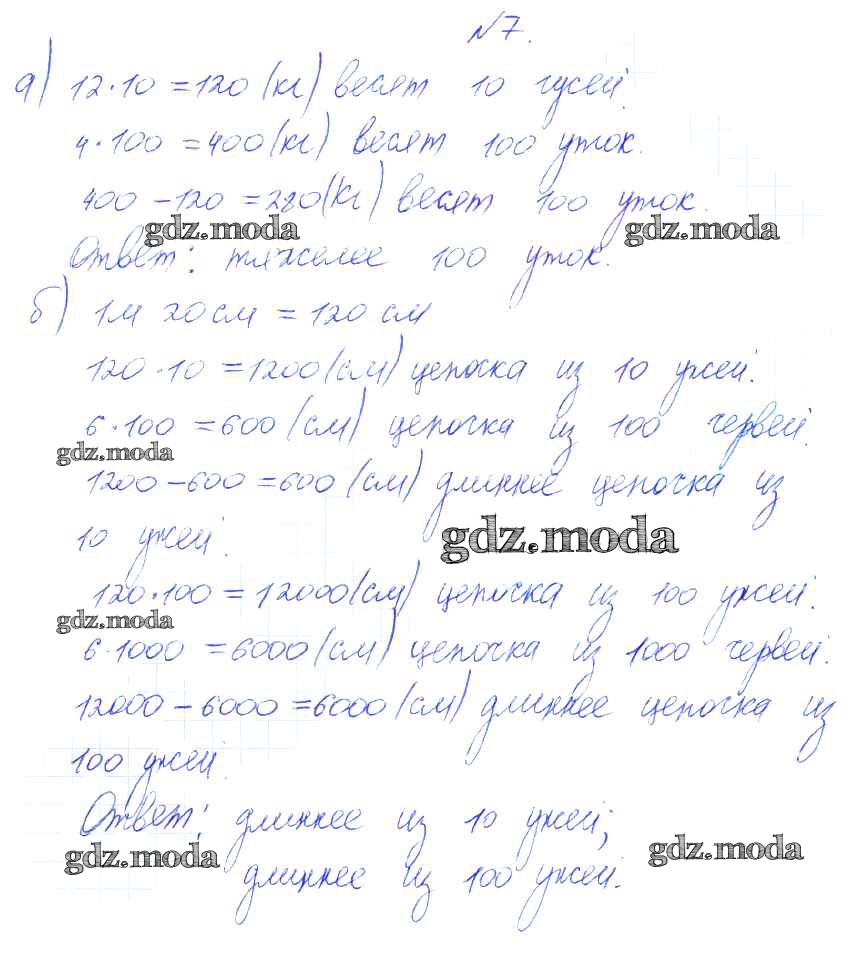 №7.
а) 12·10 = 120 (кг) весят 10 гусей.
4·100 = 400 (кг) весят 100 уток.
400 - 120 = 280 (кг) весят 100 уток.
gdz.moda gdz.moda
Ответ: тяжелее 100 уток.
б) 1м 20 см = 120 см
120·10 = 1200 (см) цепочка из 10 ужей.
6·100 = 600 (см) цепочка из 100 червей.
gdz.moda
1200 - 600 = 600 (см) длиннее цепочка из
10 ужей.
gdz.moda
120·100 = 12000 (см) цепочка из 100 ужей.
gdz.moda
6·1000 = 6000 (см) цепочка из 1000 червей.
12000 - 6000 = 6000 (см) длиннее цепочка из
100 ужей.
Ответ: длиннее из 10 ужей;
gdz.moda gdz.moda
длиннее из 100 ужей.